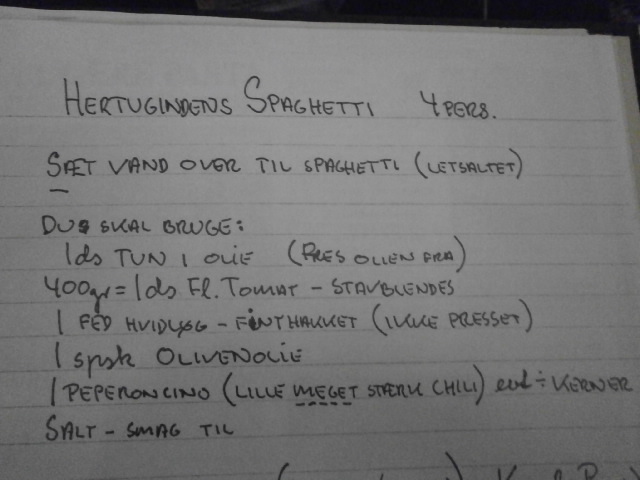 HERTUGINDENS SPAGHETTI 4 PERS.
SÆT VAND OVER TIL SPAGHETTI (LETSALTET)
DU SKAL BRUGE:
1 ds TUN I OLIE (PRES OLIEN FRA)
400gr = 1 ds Fl. TOMAT - STAVBLENDES
1 FED HVIDLØG - FINTHAKKET (IKKE PRESSET)
1 spsk OLIVENOLIE
1 PEPERONCINO (LILLE MEGET STÆRK CHILI) evt ÷ KERNER
SALT - SMAG TIL